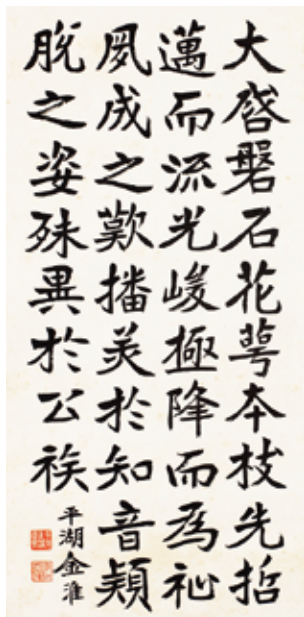 大啓磐石花萼本枝先哲
邁而流光峻極降而爲祉
夙成之歎播美於知音穎
脫之姿殊異於公族
平湖金淮